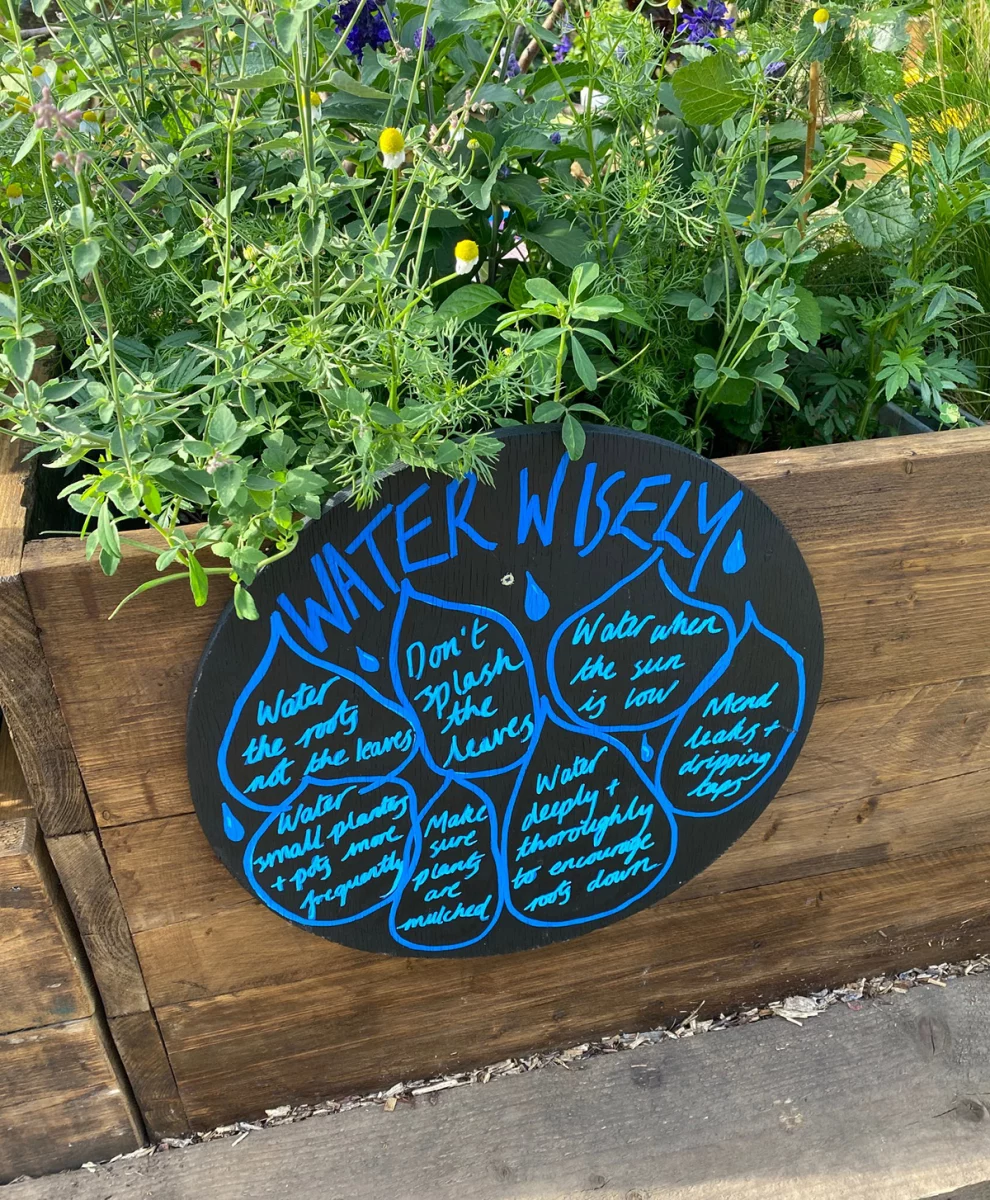 WATER WISELY
Water
the roots
not the leaves
Don't
splash
the
leaves
Water when
the sun
is low
Mend
leaks +
dripping
taps
Water
small plants
+ pots more
frequently
Make
sure
plants
are
mulched
Water
deeply +
thoroughly
to encourage
roots down